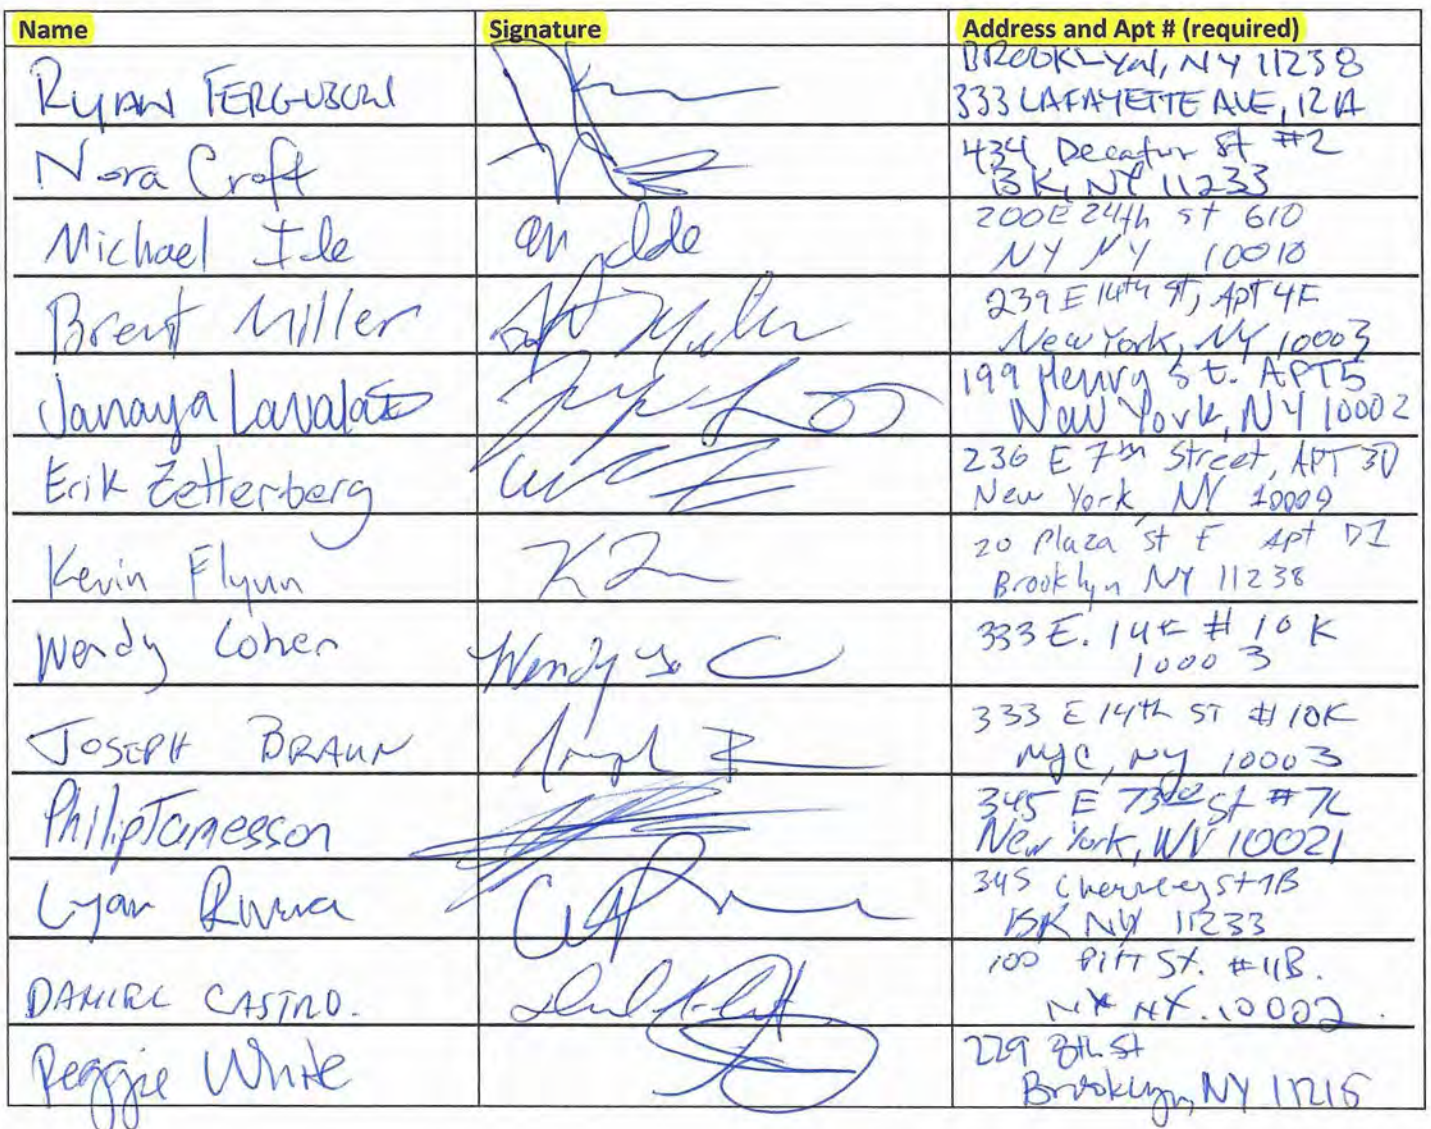 Name Signature Address and Apt # (required)
RYAN FERGUSON
BROOKLYN, NY 11238
333 LAFAYETTE AVE, 12A
Nora Croft
434 Decatur St #2
BK, NY 11233
Michael Ide
200 E 24th st 610
NY NY 10010
Brent Miller
239 E 14th st, APT 4F
New York, NY 10003
Janaya
199 Henry St. APT5
New York, NY 10002
Erik Zetterberg
236 E 7th Street, APT 3D
New York, NY 10009
Kevin Flynn
20 Plaza St E Apt D1
Brooklyn NY 11238
Wendy Cohen Wendy C
333 E. 14th # 10 K
10003
JOSEPH BRAUN
333 E 14th ST #10K
NYC, NY 10003
Philip Jamesson
345 E 73rd St #7L
New York, NY 10021
345 St 1B
BK NY 11233
DANIEL CASTRO.
100 PITT ST. #11B.
NY NY. 10002.
Reggie White
229 8th St
Brooklyn, NY 11215